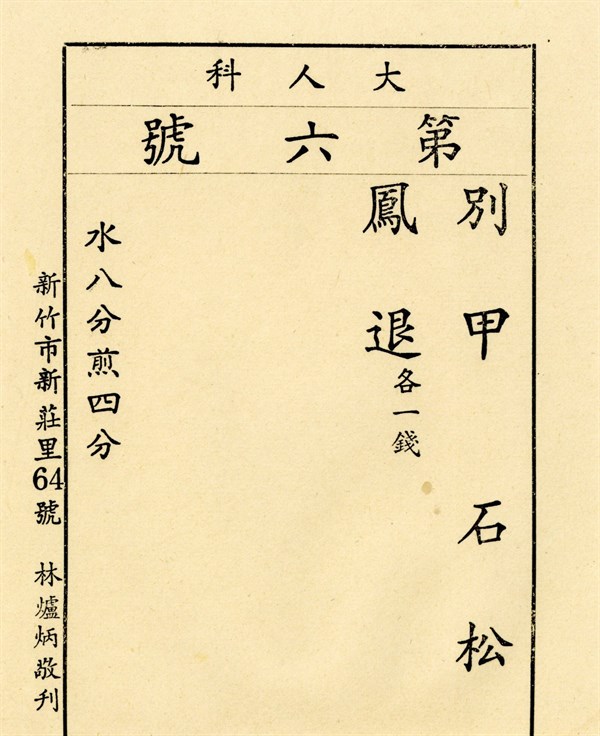 大人科
第六號
別甲 石松
鳳退各一錢
水八分煎四分
新竹市新莊里64號 林爐炳敬刋